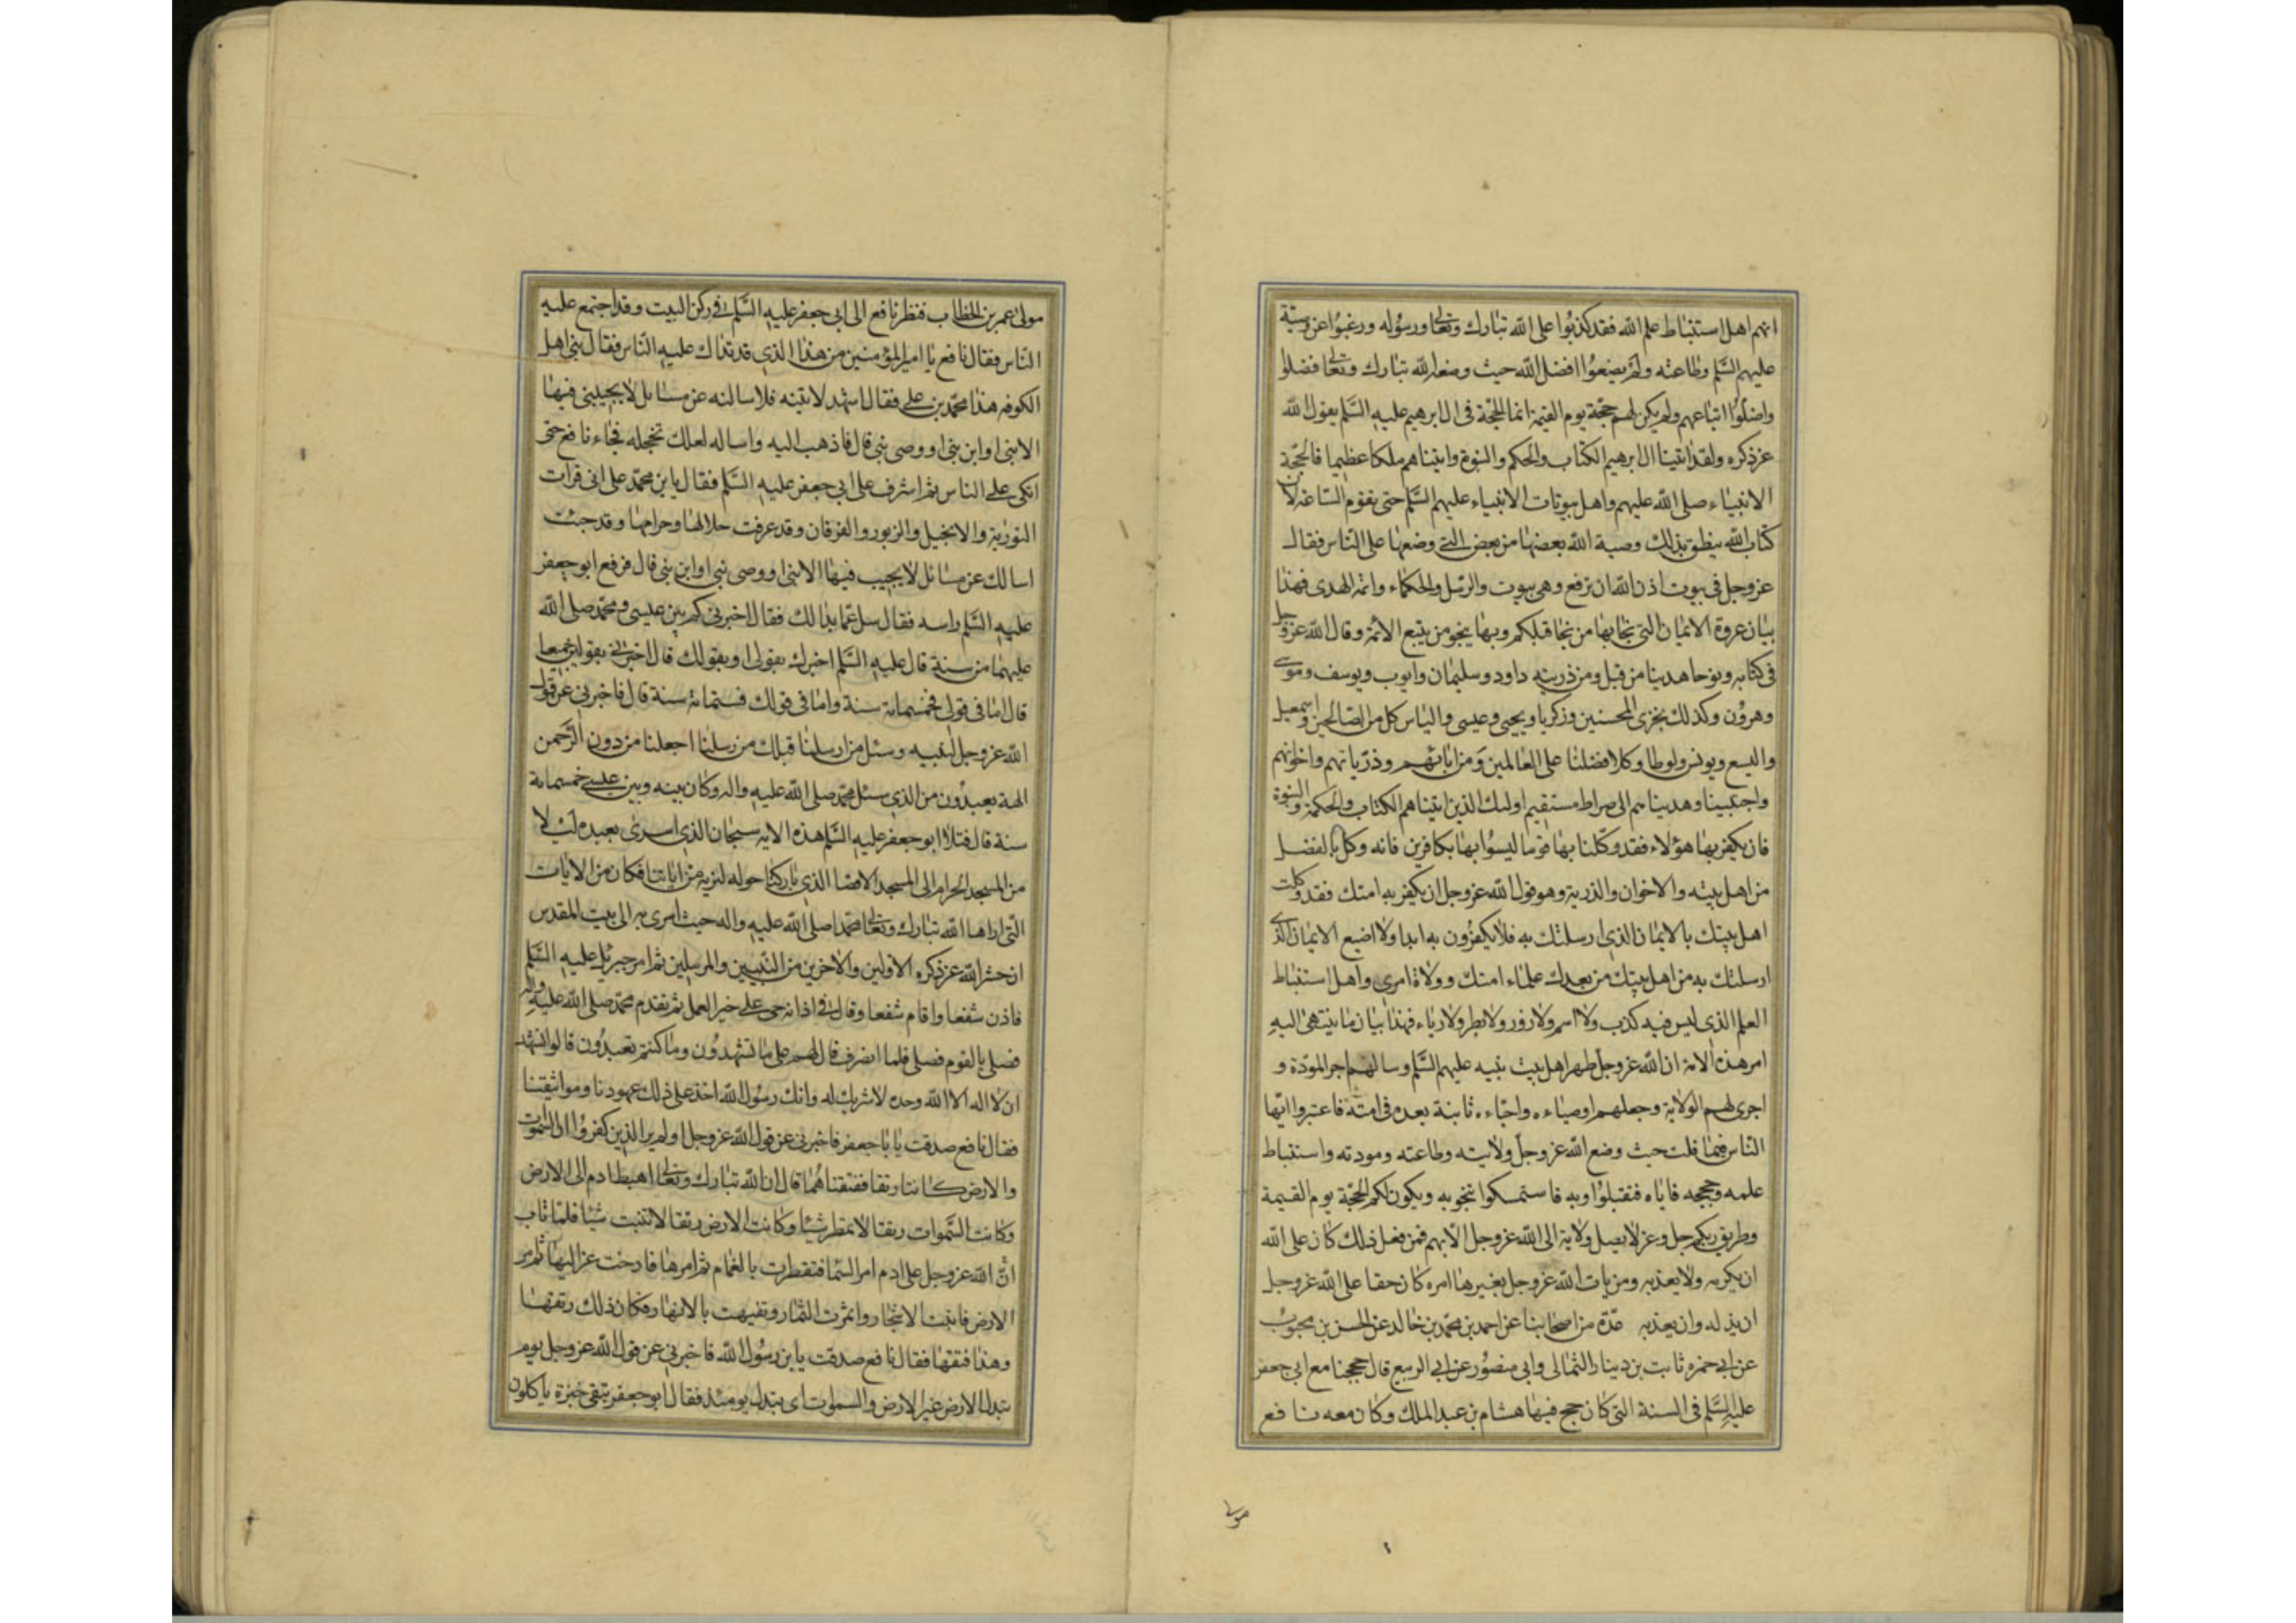 انهم اهل استنباط علم الله فقد كذبوا على الله تبارك وتعالى ورسوله ورغبوا عن وصيته
عليهم السلم وطاعته ولم يضعوا افضل الله حيث وضعه الله تبارك وتعالى فضلوا
واضلوا اتباعهم ولم يكن لهم حجة يوم القيمة انما الحجة فى ال ابرهيم عليه السلم يقول الله
عز ذكره ولقد اتينا ال ابرهيم الكتاب والحكم والنبوة واتيناهم ملكا عظيما فالحجة
الانبياء صلى الله عليهم واهل بيوتات الانبياء عليهم السلم حتى يقوم الساعة لان
كتاب الله ينطق بذلك وصية الله بعضها من بعض التى وضعها على الناس فقال
عز وجل فى بيوت اذن الله ان ترفع وهى بيوت والرسل والحكماء وائمة الهدى فهذا
بيان عروة الايمان التى نجا بها من نجا قبلكم وبها ينجو من يتبع الائمة وقال الله عز وجل
فى كتابه ونوحا هدينا من قبل ومن ذريته داود وسليمان وايوب ويوسف وموسى
وهرون وكذلك نجزى المحسنين وزكريا ويحيى وعيسى والياس كل من الصالحين واسمعيل
واليسع ويونس ولوطا وكلا فضلنا على العالمين ومن ابائهم وذرياتهم واخوانهم
واجتبيناهم وهديناهم الى صراط مستقيم اولئك الذين اتيناهم الكتاب والحكمة والنبوة
فان يكفر بها هؤلاء فقد وكلنا بها قوما ليسوا بها بكافرين فانه وكل بالفضل
من اهل بيته والاخوان والذرية وهو قول الله عز وجل ان يكفر به امتك فقد وكلت
اهل بيتك بالايمان الذى ارسلتك به فلا يكفرون به ابدا ولا اضيع الايمان الذى
ارسلتك به من اهل بيتك من بعدك علماء امتك وولاة امرى واهل استنباط
العلم الذى ليس فيه كذب ولا اثم ولا زور ولا بطر ولا رياء فهذا بيان ما ينتهى اليه
امر هذه الامة ان الله عز وجل طهر اهل بيت نبيه عليهم السلم وسالهم اجر المودة و
اجرى لهم الولاية وجعلهم اوصياءه واحباءه ثابتة بعده فى امته فاعتبروا ايها
الناس فيما قلت حيث وضع الله عز وجل ولايته وطاعته ومودته واستنباط
علمه وحججه فاياه فتقبلوا وبه فاستمسكوا تنجو به ويكون لكم الحجة يوم القيمة
وطريق ربكم جل وعز لا يصل ولاية الى الله عز وجل الا بهم فمن فعل ذلك كان على الله
ان يكرمه ولا يعذبه ومن يات الله عز وجل بغير ما امره كان حقا على الله عز وجل
ان يذله وان يعذبه عدة من اصحابنا عن احمد بن محمد بن خالد عن الحسن بن محبوب
عن ابى حمزه ثابت بن دينار الثمالى وابى منصور عن ابى الربيع قال حججنا مع ابى جعفر
عليه السلم فى السنة التى كان حج فيها هشام بن عبد الملك وكان معه نافع
مولى
مولى عمر بن الخطاب فنظر نافع الى ابى جعفر عليه السلم فى ركن البيت وقد اجتمع عليه
الناس فقال نافع يا امير المؤمنين من هذا الذى قد تداك عليه الناس فقال نبى اهل
الكوفه هذا محمد بن على فقال اشهد لاتينه فلاسالنه عن مسايل لا يجيبنى فيها
الا نبى او ابن نبى او وصى نبى قال فاذهب اليه واساله لعلك تخجله فجاء نافع حتى
اتكى على الناس ثم اشرف على ابى جعفر عليه السلم فقال يا بن محمد على انى قرات
التورية والانجيل والزبور والفرقان وقد عرفت حلالها وحرامها وقد جئت
اسالك عن مسائل لا يجيب فيها الا نبى او وصى نبى او ابن نبى قال فرفع ابو جعفر
عليه السلم راسه فقال سل عما بدا لك فقال اخبرنى كم بين عيسى ومحمد صلى الله
عليهما من سنة قال عليه السلم اخبرك بقولى او بقولك قال اخبرنى بقولين جميعا
قال اما فى قولى فخمسمائة سنة واما فى قولك فستمائة سنة قال فاخبرنى عن قول
الله عز وجل لنبيه وسئل من ارسلنا قبلك من رسلنا اجعلنا من دون الرحمن
الهة يعبدون من الذى سئل محمد صلى الله عليه واله وكان بينه وبين عيسى خمسمائة
سنة قال فتلا ابو جعفر عليه السلم هذه الاية سبحان الذى اسرى بعبده ليلا
من المسجد الحرام الى المسجد الاقصا الذى باركنا حوله لنريه من اياتنا فكان من الايات
التى اراها الله تبارك وتعالى محمدا صلى الله عليه واله حيث اسرى به الى بيت المقدس
ان حشر الله عز ذكره الاولين والاخرين من النبيين والمرسلين ثم امر جبرئيل عليه السلم
فاذن شفعا واقام شفعا وقال فى اذانه حى على خير العمل ثم تقدم محمد صلى الله عليه واله
فصلى بالقوم فصلى فلما انصرف قال لهم على ما تشهدون وما كنتم تعبدون قالوا نشهد
ان لا اله الا الله وحده لا شريك له وانك رسول الله اخذ على ذلك عهودنا ومواثيقنا
فقال نافع صدقت يا با جعفر فاخبرنى عن قول الله عز وجل اولم ير الذين كفروا ان السموات
والارض كانتا رتقا ففتقناهما قال ان الله تبارك وتعالى اهبط ادم الى الارض
وكانت السموات رتقا لا تمطر شيئا وكانت الارض رتقا لا تنبت شيئا فلما تاب
الله عز وجل على ادم امر السما فتقطرت بالغمام ثم امرها فارخت عزاليها ثم امر
الارض فانبتت الاشجار واثمرت الثمار وتفيهت بالانهار فكان ذلك رتقها
وهذا فتقها فقال نافع صدقت يا بن رسول الله فاخبرنى عن قول الله عز وجل يوم
تبدل الارض غير الارض والسموات اى تبدل يومئذ فقال ابو جعفر تبقى خبزة ياكلون